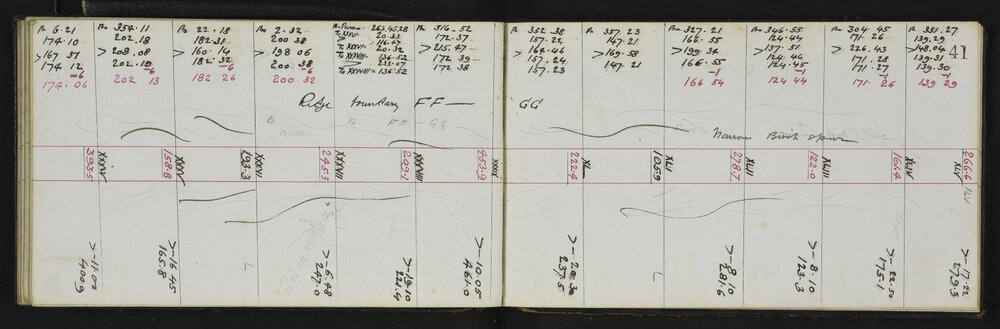 6.21
174.10
>167.37
174.12
-6
174.06
354.11
202.18
>208.08
202.19
-6
202 13
22.18
182.31
>160.14
182.32
-6
182 26
2.32
200 38
>198 06
200.38
-6
200 32
263.45.28
20.33
116.47
To XXXVII = 20.32
136.52
To XXXVIII = 136.52
316.52
172.37
>215.47
172 39
172 38
352.38
157.22
>164.46
157.24
157.23
357.23
167.21
>169.58
147.21
327.21
166.55
>199.34
166.55
-1
166 54
346.55
124.44
>137.51
124.46
124.45
-1
124 44
304.45
171.26
>226.43
171.28
171.27
-1
171 26
351.27
139.29
>148.04
139.31
139.30
-1
139 29
41
Ridge boundary FF
GG
B
B
FF - GG
Narrow Birch spur
XXXIV
393.5
XXXV
158.8
XXXVI
193.3
XXXVII
245.3
XXXVIII
209.1
XXXIX
453.9
XL
222.4
XLI
105.9
XLII
278.7
XLIII
122.0
XLIV
161.4
XLV
266.6
XLV
>-11.00
400.9
>-16 45
165.8
L
>-6.48
247.0
>-19.10
221.4
>-10.05
461.0
>-20.30
237.5
L
>-8.10
281.6
>-8.10
123.3
>-22.50
175.1
>-17.22
279.3